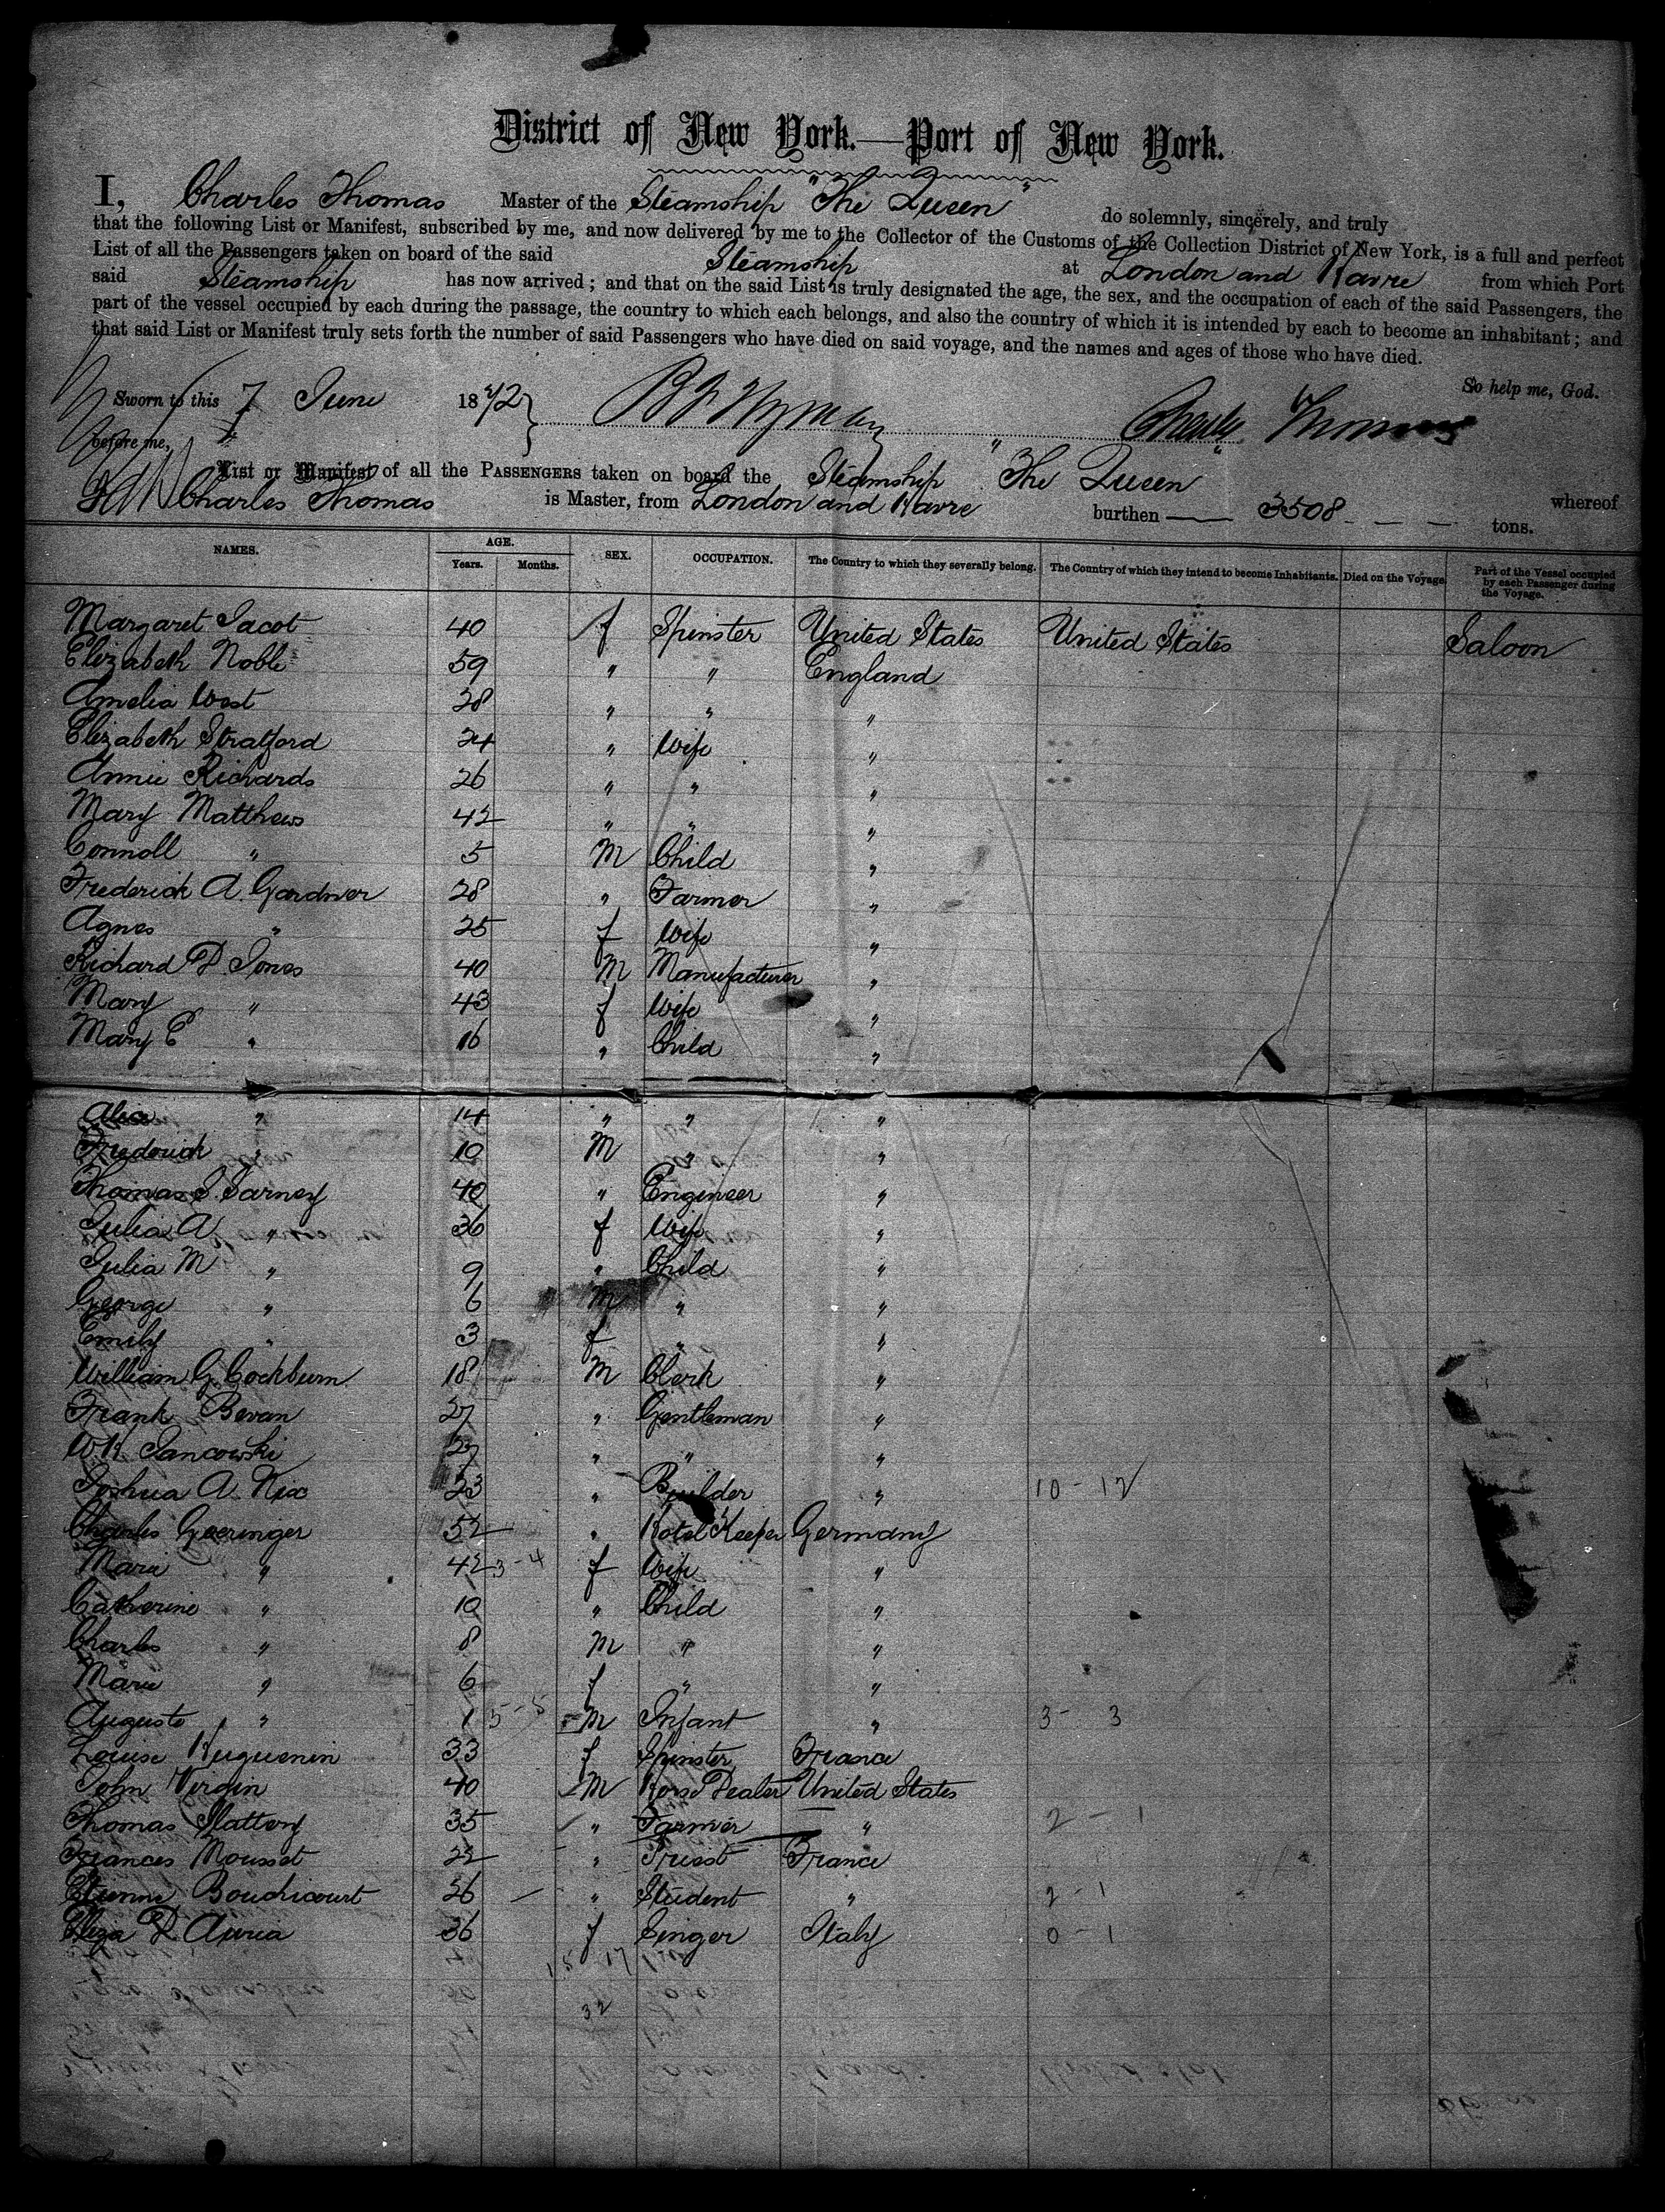 District of New York.—Port of New York.
I, Charles Thomas Master of the Steamship "The Queen" do solemnly, sincerely, and truly
that the following List or Manifest, subscribed by me, and now delivered by me to the Collector of the Customs of the Collection District of New York, is a full and perfect
List of all the Passengers taken on board of the said Steamship at London and Havre from which Port
said Steamship has now arrived; and that on the said List is truly designated the age, the sex, and the occupation of each of the said Passengers, the
part of the vessel occupied by each during the passage, the country to which each belongs, and also the country of which it is intended by each to become an inhabitant; and
that said List or Manifest truly sets forth the number of said Passengers who have died on said voyage, and the names and ages of those who have died.
So help me, God.
Sworn to this 7 June 1872 Charles Thomas
before me,
List or Manifest of all the PASSENGERS taken on board the Steamship "The Queen" whereof
Charles Thomas is Master, from London and Havre burthen — 3508 — — — tons.
NAMES. AGE. Years. Months. SEX. OCCUPATION. The Country to which they severally belong. The Country of which they intend to become Inhabitants. Died on the Voyage. Part of the Vessel occupied by each Passenger during the Voyage.
Margaret Jacot 40 f Spinster United States United States Saloon
Elizabeth Noble 59 " " England
Amelia West 28 " " "
Elizabeth Stratford 24 " Wife "
Annie Richards 26 " " "
Mary Matthews 42 " " "
Connoll " 5 M Child "
Frederick A. Gardner 28 " Farmer "
Agnes " 25 f Wife "
Richard D. Jones 40 M Manufacturer "
Mary " 43 f Wife "
Mary E " 16 " Child "
Alice " 14 " " "
Frederick " 10 M " "
Thomas S. Jarney 40 " Engineer "
Julia A " 36 f Wife "
Julia M " 9 " Child "
George " 6 M " "
Emily " 3 f " "
William G. Cockburn 18 M Clerk "
Frank Bevan 27 " Gentleman "
W H Jancowski 27 " " "
Joshua A. Nix 23 " Builder " 10 - 12
Charles Goeringer 52 " Hotel Keeper Germany
Marie " 42 3-4 f Wife "
Catherine " 10 " Child "
Charles " 8 M " "
Marie " 6 f " "
Auguste " 1 5-5 M Infant " 3 - 3
Louise Huguenin 33 f Spinster France
John Virgin 40 M Horse Dealer United States
Thomas Slattery 35 " Farmer " 2 - 1
Frances Mousset 22 " Priest France
Etienne Boudricourt 26 " Student " 2 - 1
Eliza D. Auria 36 f Singer Italy 0 - 1
15 17
32